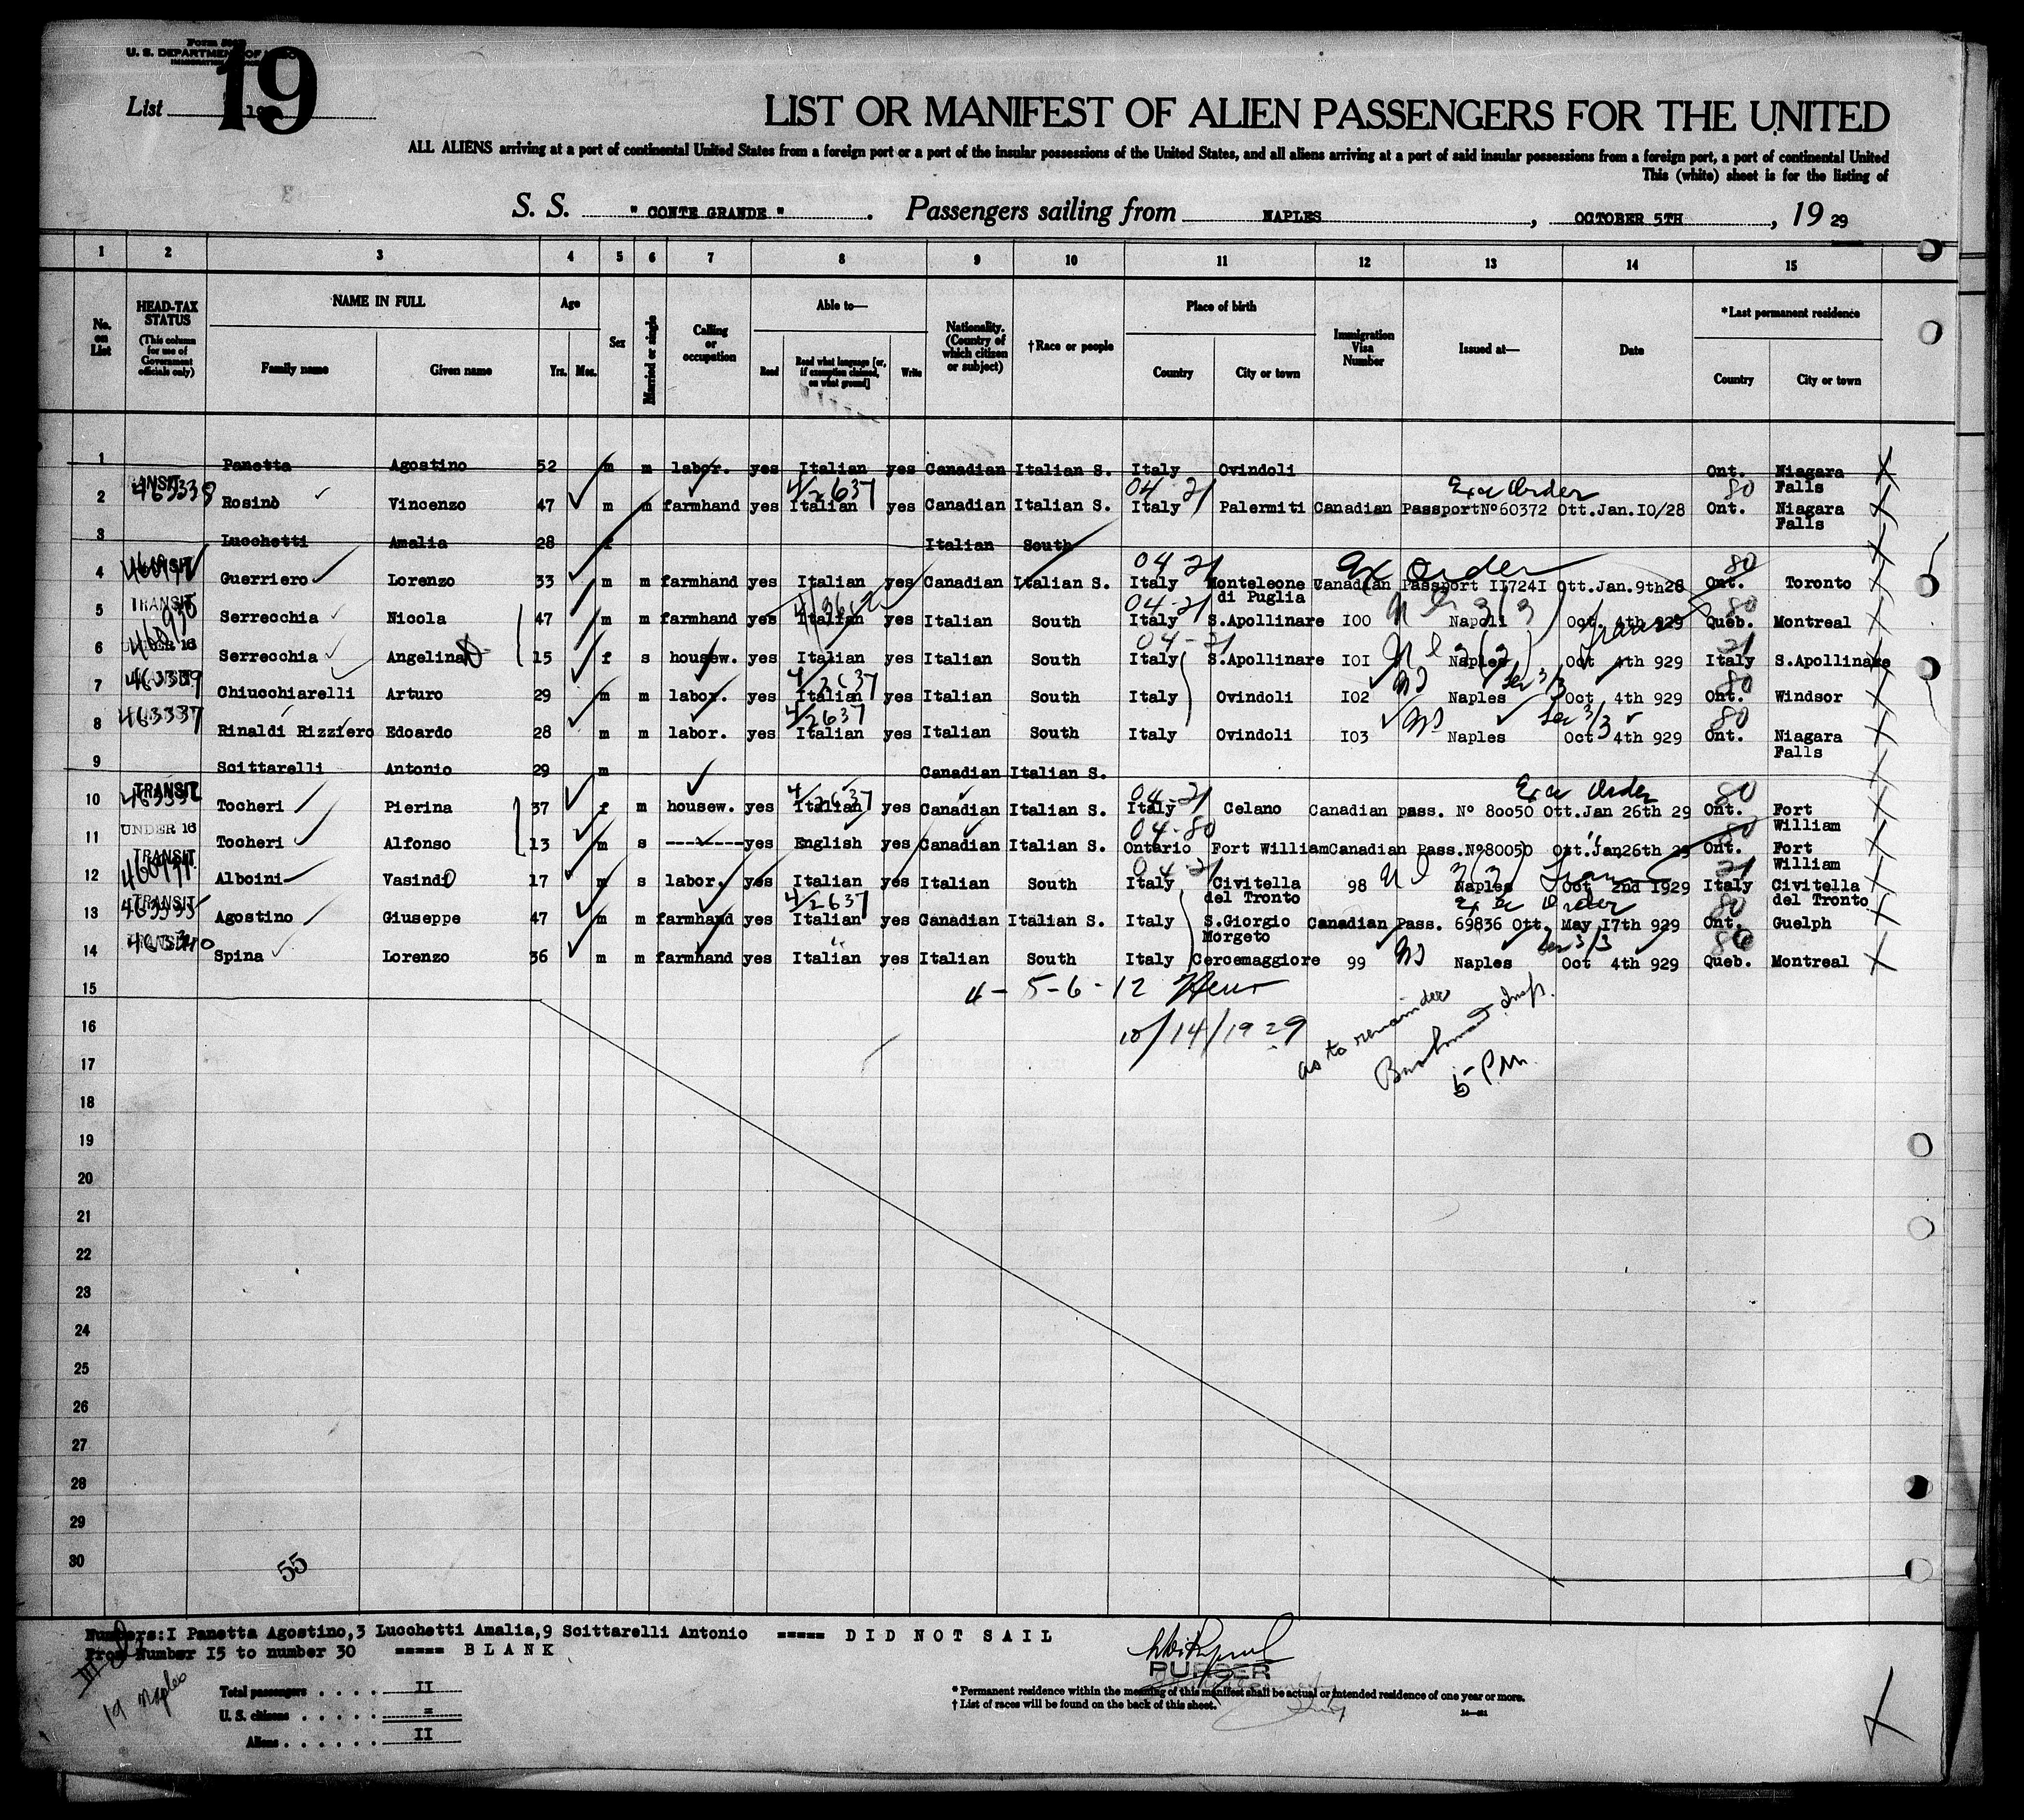 Form 500
U. S. DEPARTMENT OF
19
List 19
LIST OR MANIFEST OF ALIEN PASSENGERS FOR THE UNITED
ALL ALIENS arriving at a port of continental United States from a foreign port or a port of the insular possessions of the United States, and all aliens arriving at a port of said insular possessions from a foreign port, a port of continental United
This (white) sheet is for the listing of
S. S. " CONTE GRANDE " . Passengers sailing from NAPLES , OCTOBER 5TH , 19 29
1 2 3 4 5 6 7 8 9 10 11 12 13 14 15
No. on List
HEAD-TAX STATUS (This column for use of Government officials only)
NAME IN FULL
Family name Given name
Age
Yrs. Mos.
Sex
Married or single
Calling or occupation
Able to—
Read Read what language [or, if exemption claimed, on what ground] Write
Nationality. (Country of which citizen or subject)
†Race or people
Place of birth
Country City or town
Immigration Visa Number
Issued at—
Date
*Last permanent residence
Country City or town
1 Panetta Agostino 52 m m labor. yes Italian yes Canadian Italian S. Italy Ovindoli Ont. Niagara Falls
463338 4/2637 04-21 Exc Order 80
2 Rosinò Vincenzo 47 m m farmhand yes Italian yes Canadian Italian S. Italy Palermiti Canadian PassportNº60372 Ott.Jan.I0/28 Ont. Niagara Falls
3 Lucchetti Amalia 28 f Italian South
04 21 Ex Order 80
4 Guerriero Lorenzo 33 m m farmhand yes Italian yes Canadian Italian S. Italy Monteleone di Puglia Canadian Passport II724I Ott.Jan.9th28 Ont. Toronto
TRANSIT 04-21 80
5 Serrecchia Nicola 47 m m farmhand yes Italian yes Italian South Italy S.Apollinare I00 Napoli Oct. 4th 929 Queb. Montreal
UNDER 16 04-21 21
6 Serrecchia Angelina 15 f s housew. yes Italian yes Italian South Italy S.Apollinare I0I Naples Oct 4th 929 Italy S.Apollinare
463339 4/2637 80
7 Chiucchiarelli Arturo 29 m m labor. yes Italian yes Italian South Italy Ovindoli I02 Naples Oct 4th 929 Ont. Windsor
463337 4/2637 80
8 Rinaldi Rizziero Edoardo 28 m m labor. yes Italian yes Italian South Italy Ovindoli I03 Naples Oct 4th 929 Ont. Niagara Falls
9 Scittarelli Antonio 29 m Canadian Italian S.
TRANSIT 4/2637 04-21 Exc Order 80
10 Tocheri Pierina 37 f m housew. yes Italian yes Canadian Italian S. Italy Celano Canadian pass. Nº 80050 Ott.Jan 26th 29 Ont. Fort William
UNDER 16 04-80 80
11 Tocheri Alfonso 13 m s -------- yes English yes Canadian Italian S. Ontario Fort William Canadian Pass.Nº80050 Ott.Jan26th 29 Ont. Fort William
TRANSIT 04-21 21
12 Alboini Vasindo 17 m s labor. yes Italian yes Italian South Italy Civitella del Tronto 98 Naples Oct 2nd 1929 Italy Civitella del Tronto
TRANSIT 463335 4/2637 Exc Order 80
13 Agostino Giuseppe 47 m m farmhand yes Italian yes Canadian Italian S. Italy S.Giorgio Morgeto Canadian Pass. 69836 Ott. May I7th 929 Ont. Guelph
463340 80
14 Spina Lorenzo 36 m m farmhand yes Italian yes Italian South Italy Cercemaggiore 99 Naples Oct 4th 929 Queb. Montreal
15 4- 5-6-12
16 10/14/1929 as to remainder Insp.
17 5 PM
18
19
20
21
22
23
24
25
26
27
28
29
30
55
Numbers:I Panetta Agostino,3 Lucchetti Amalia,9 Scittarelli Antonio ===== D I D N O T S A I L
From Number I5 to number 30 ===== B L A N K
19 Naples
Total passengers . . . . II
U. S. citizens . . . . . =
Aliens . . . . . . II
PURSER
* Permanent residence within the meaning of this manifest shall be actual or intended residence of one year or more.
† List of races will be found on the back of this sheet.